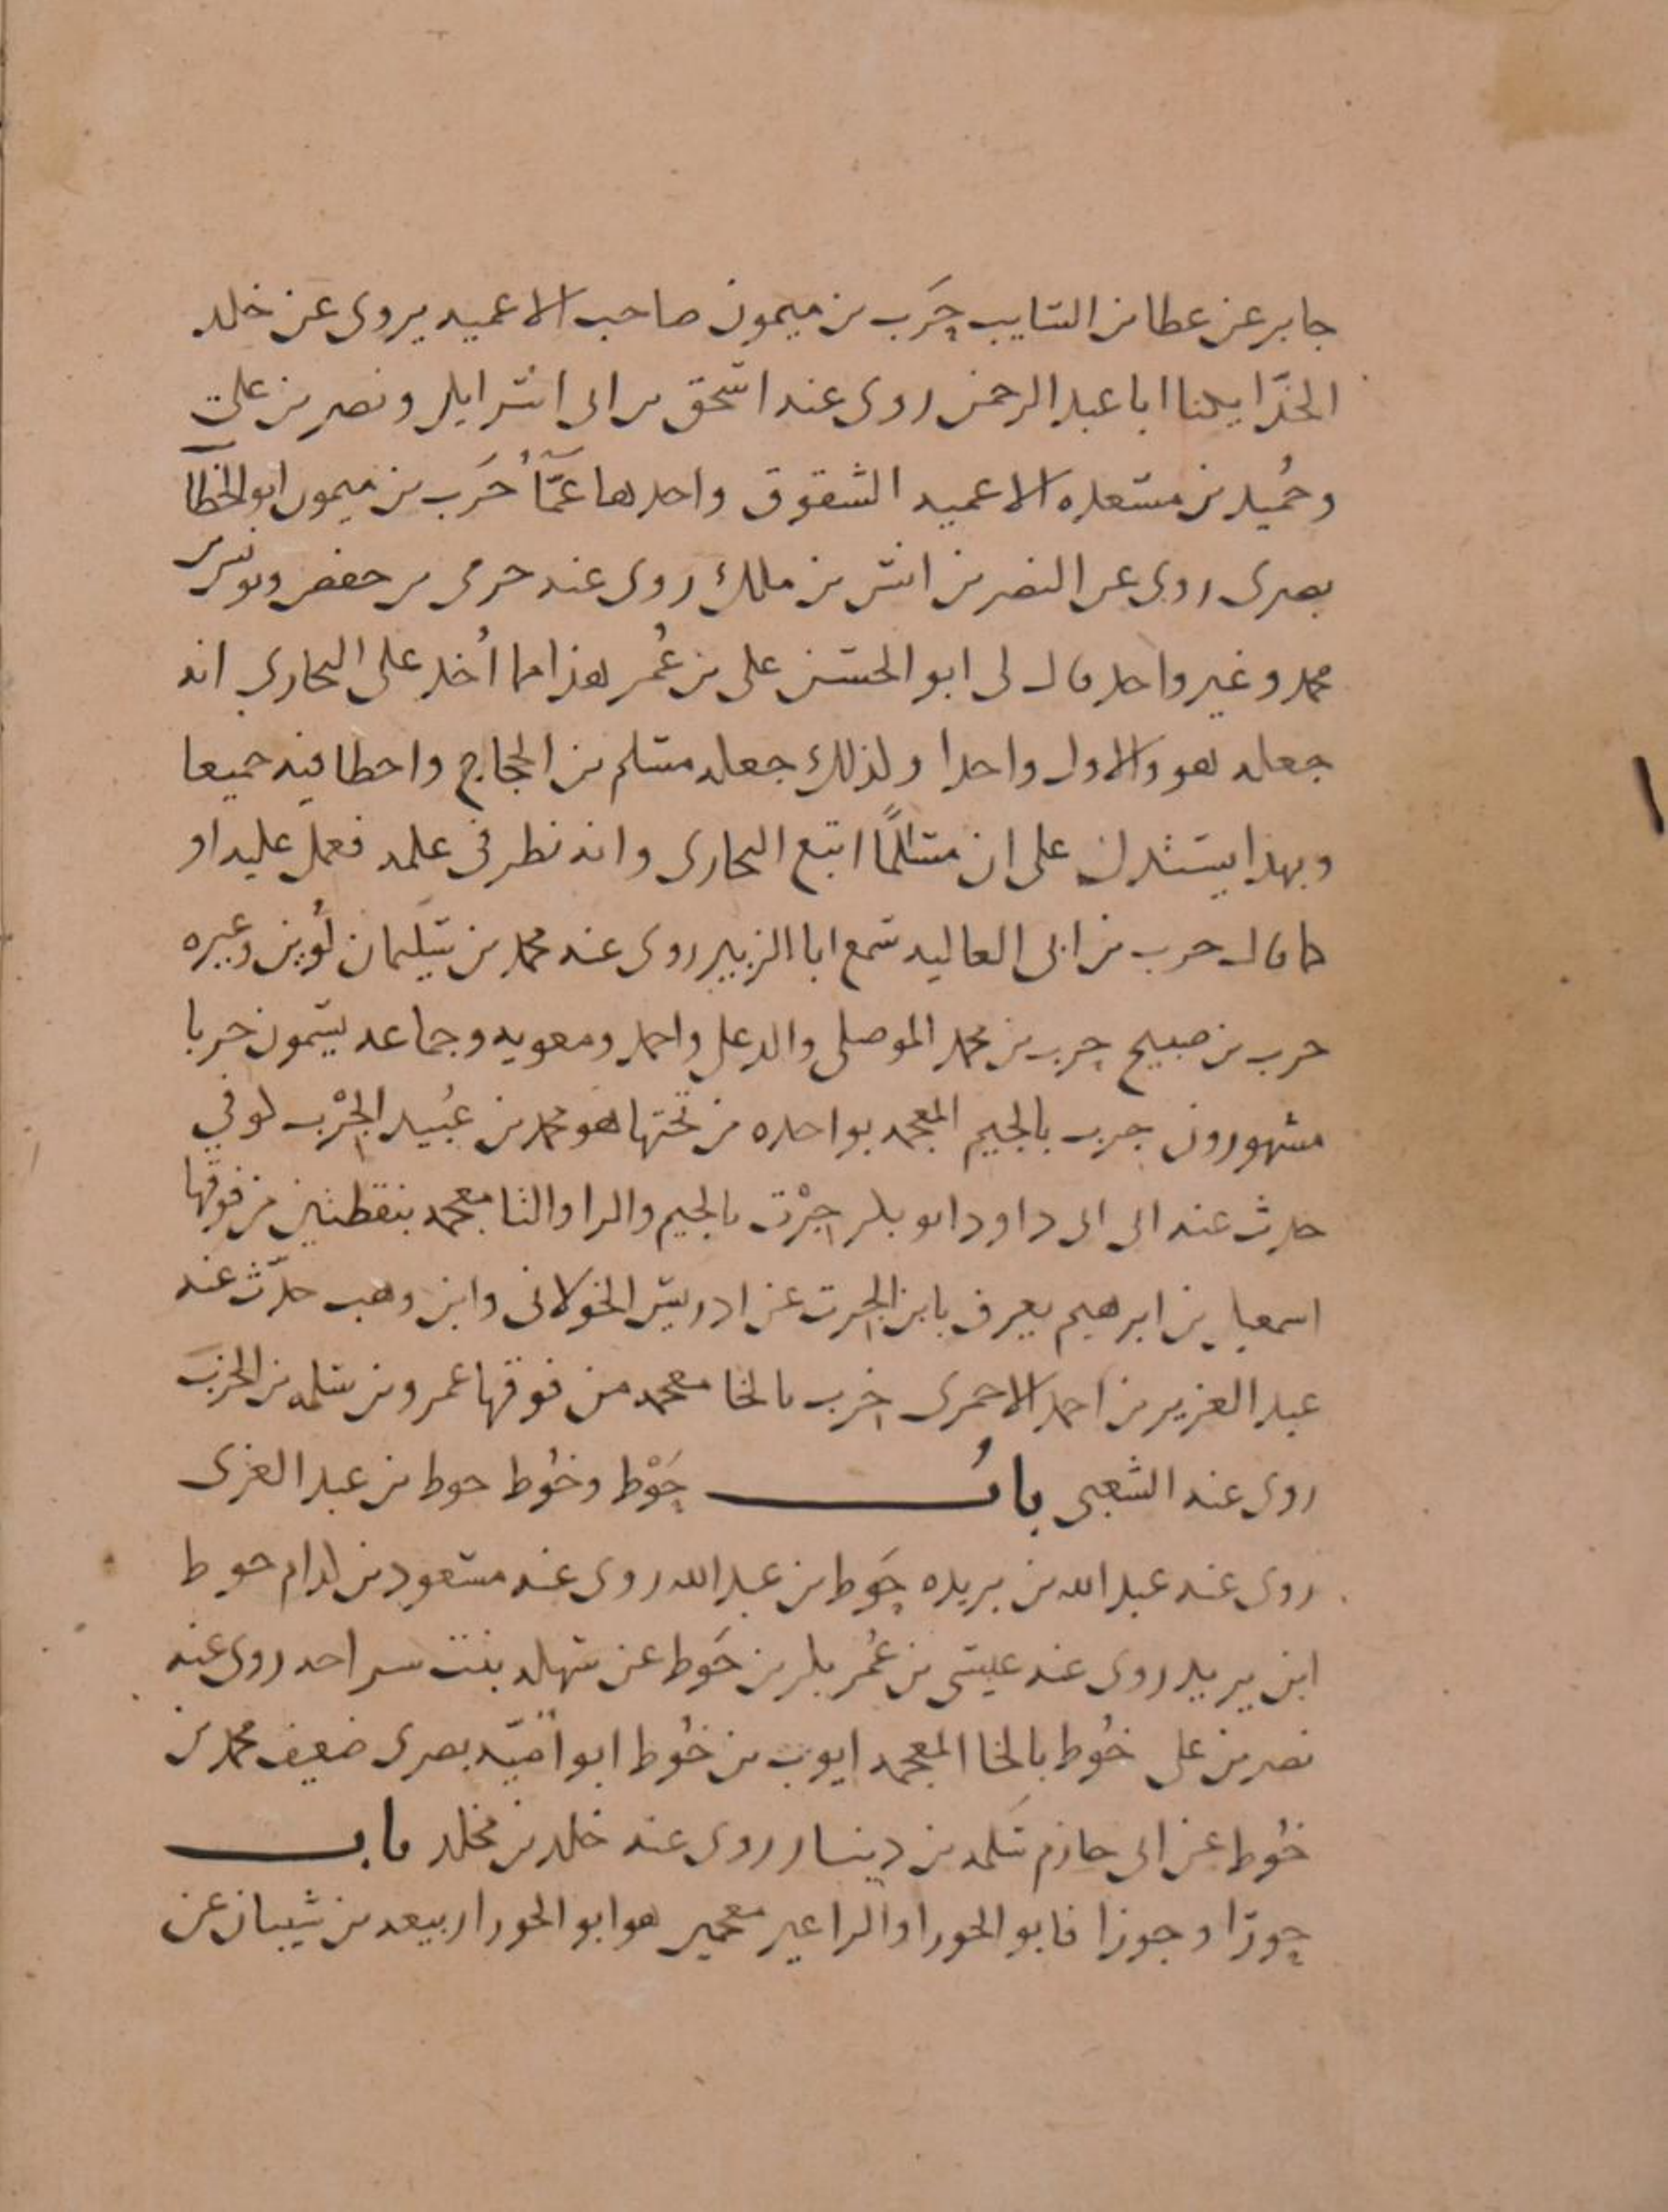 جابر عن عطا بن السايب حَرب بن ميمون صاحب الاعميه يروى عن خلد
الحذّا يكنا ابا عبد الرحمن روى عنه اسحق بن ابى اسرايل ونصر بن على
وحُميد بن مسعده الاعميه الشقوق واحدها عَمَّا حَرب بن ميمون ابو الخطا
بصرى روى عن النضر بن انس بن ملك روى عنه حرمى بن حفص ويونس بن
محمد وغير واحد قال لى ابو الحسن على بن عُمر هذا مما اُخد على البخارى انه
جعله هو والاول واحدا ولذلك جعله مسلم بن الحجاج واخطا فيه جميعا
وبهذا يستدل على ان مسلمًا اتبع البخارى وانه نظر فى علمه فعمل عليه او
كما قال حرب بن ابى العاليه سمع ابا الزبير روى عنه محمد بن سُليمان لُوين وغيره
حرب بن صبيح حرب بن محمد الموصلى والد على واحمد ومعويه وجماعه يسمون حربا
مشهورون جرب بالجيم المعجمه بواحده من تحتها هو محمد بن عُبيد الجَرْب كوفي
حدث عنه ابن ابى داود ابو بكر جِرْت بالجيم والرا والتا معجمه بنقطتين من فوقها
اسمعيل بن ابرهيم يعرف بابن الجرت عن ادريس الخولانى وابن وهب حدّث عنه
عبد العزيز بن احمد الاحمرى خرب بالخا معجمه من فوقها عمرو بن سلمه بن الخرب
روى عنه الشعبى بابُ حَوْط وخُوط حوط بن عبد العزى
روى عنه عبد الله بن بريده حَوط بن عبد الله روى عنه مسعود بن كدام حوط
ابن يريد روى عنه عيسى بن عُمر بكر بن حَوط عن سهله بنت روى عنه
نصر بن على خُوط بالخا المعجمه ايوب بن خُوط ابو اُميّه بصرى ضعيف محمد بن
خُوط عن ابى حازم سَلمه بن دينار روى عنه خلد بن مخلد باب
حورا وجوزا فابو الحورا والرا غير معجمه هو ابو الحورا ربيعه بن شيبان عن